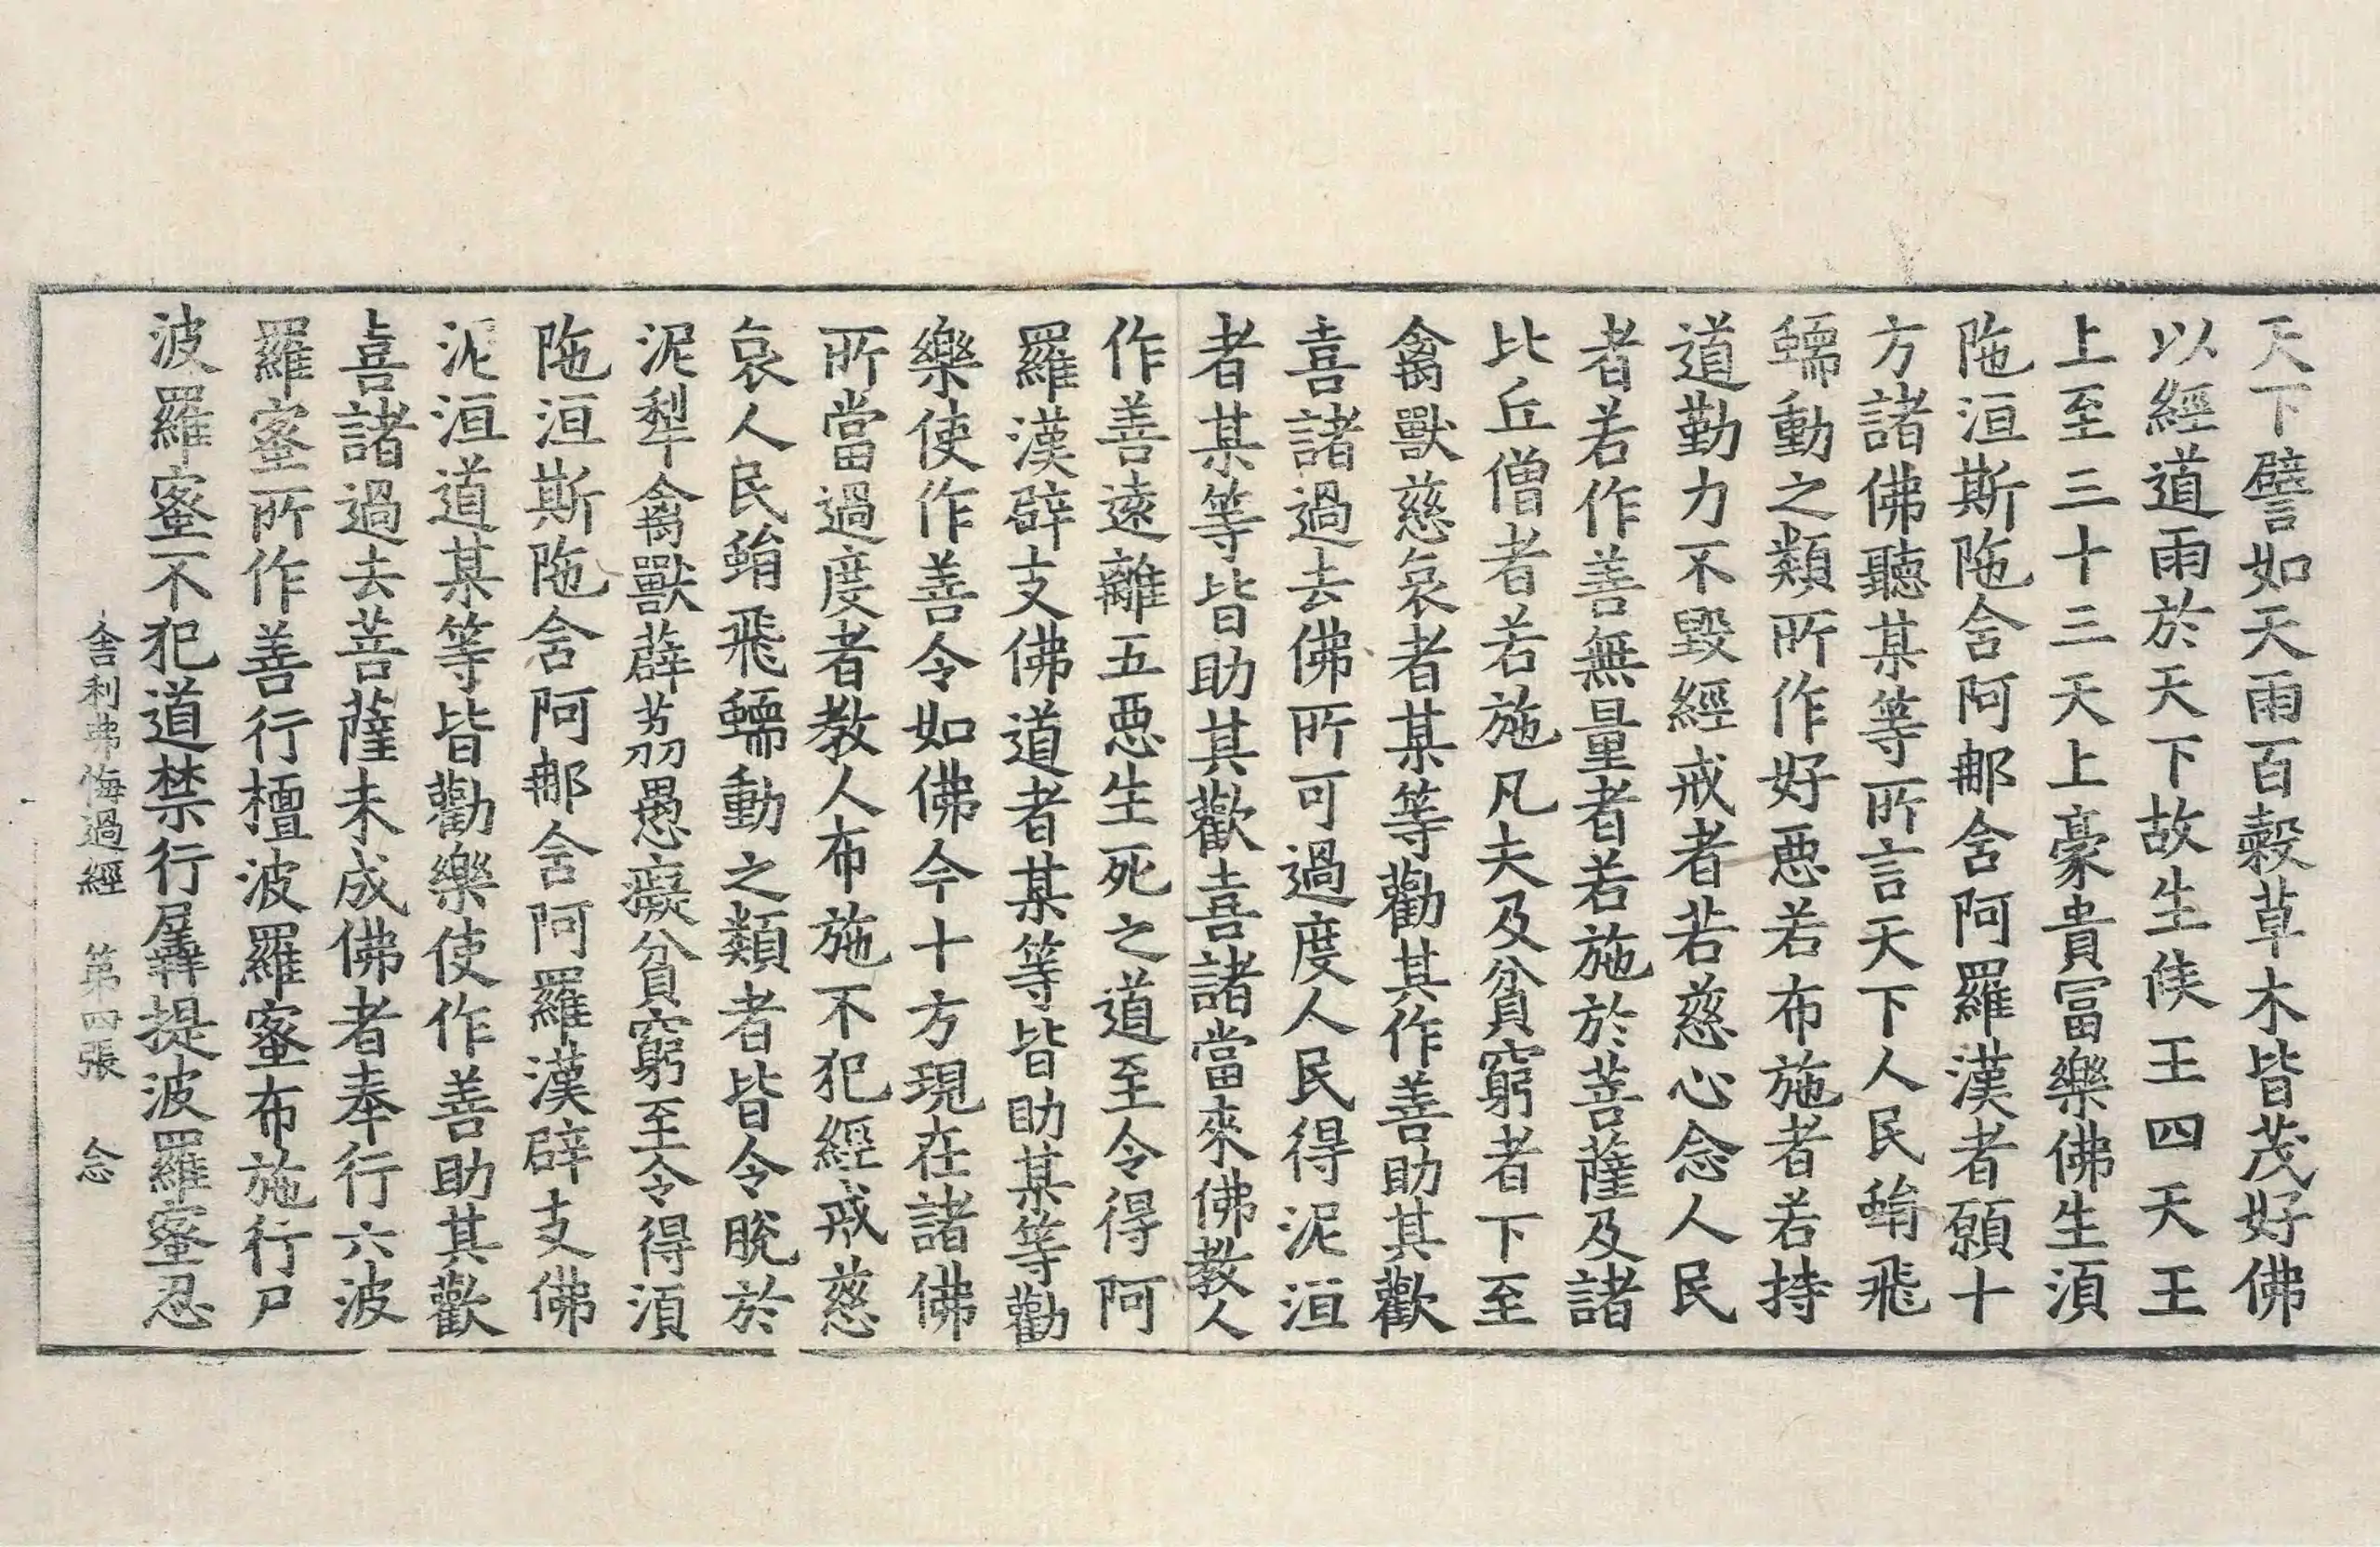 天下譬如天雨百穀草木皆茂好佛
以經道雨於天下故生侯王四天王
上至三十三天上豪貴冨樂佛生湏
陁洹斯陁含阿郍含阿羅漢者願十
方諸佛聽某等所言天下人民蜎飛
蠕動之類所作好惡若布施者若持
道勤力不毀經戒者若慈心念人民
者若作善無量者若施於菩薩及諸
比丘僧者若施凡夫及貧窮者下至
禽獸慈哀者某等勸其作善助其歡
喜諸過去佛所可過度人民得泥洹
者某等皆助其歡喜諸當來佛教人
作善遠離五惡生死之道至令得阿
羅漢辟支佛道者某等皆助某等勸
樂使作善令如佛今十方現在諸佛
所當過度者教人布施不犯經戒慈
哀人民蜎飛蠕動之類者皆令脫於
泥犁禽獸薜荔愚癡貧窮至令得湏
陁洹斯陁含阿郍含阿羅漢辟支佛
泥洹道某等皆勸樂使作善助其歡
喜諸過去菩薩未成佛者奉行六波
羅蜜所作善行檀波羅蜜布施行尸
波羅蜜不犯道禁行羼提波羅蜜忍
舍利弗悔過經 第四張 念